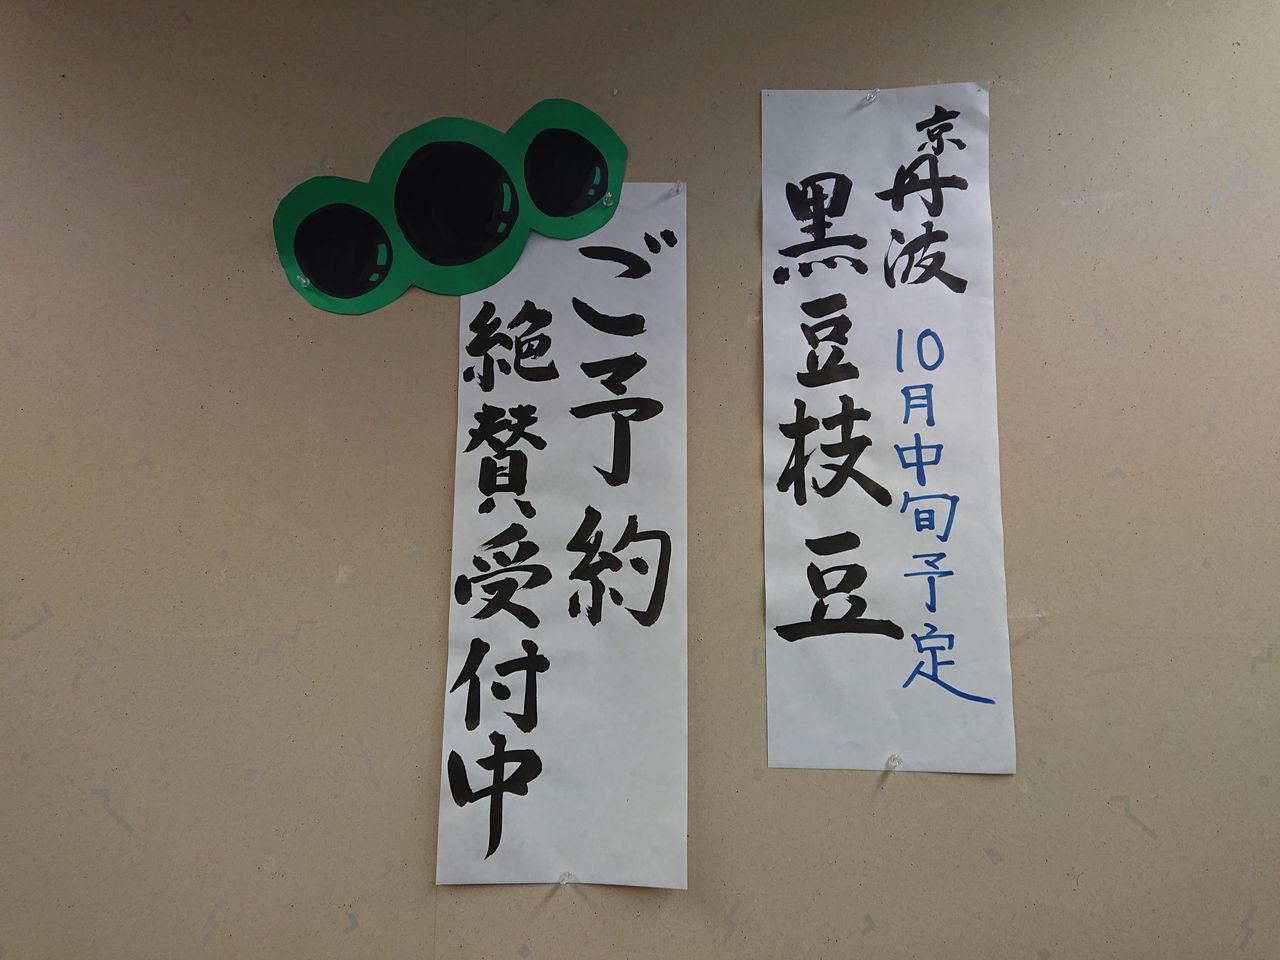 京丹波
10月中旬予定
黒豆枝豆
ご予約
絶賛受付中